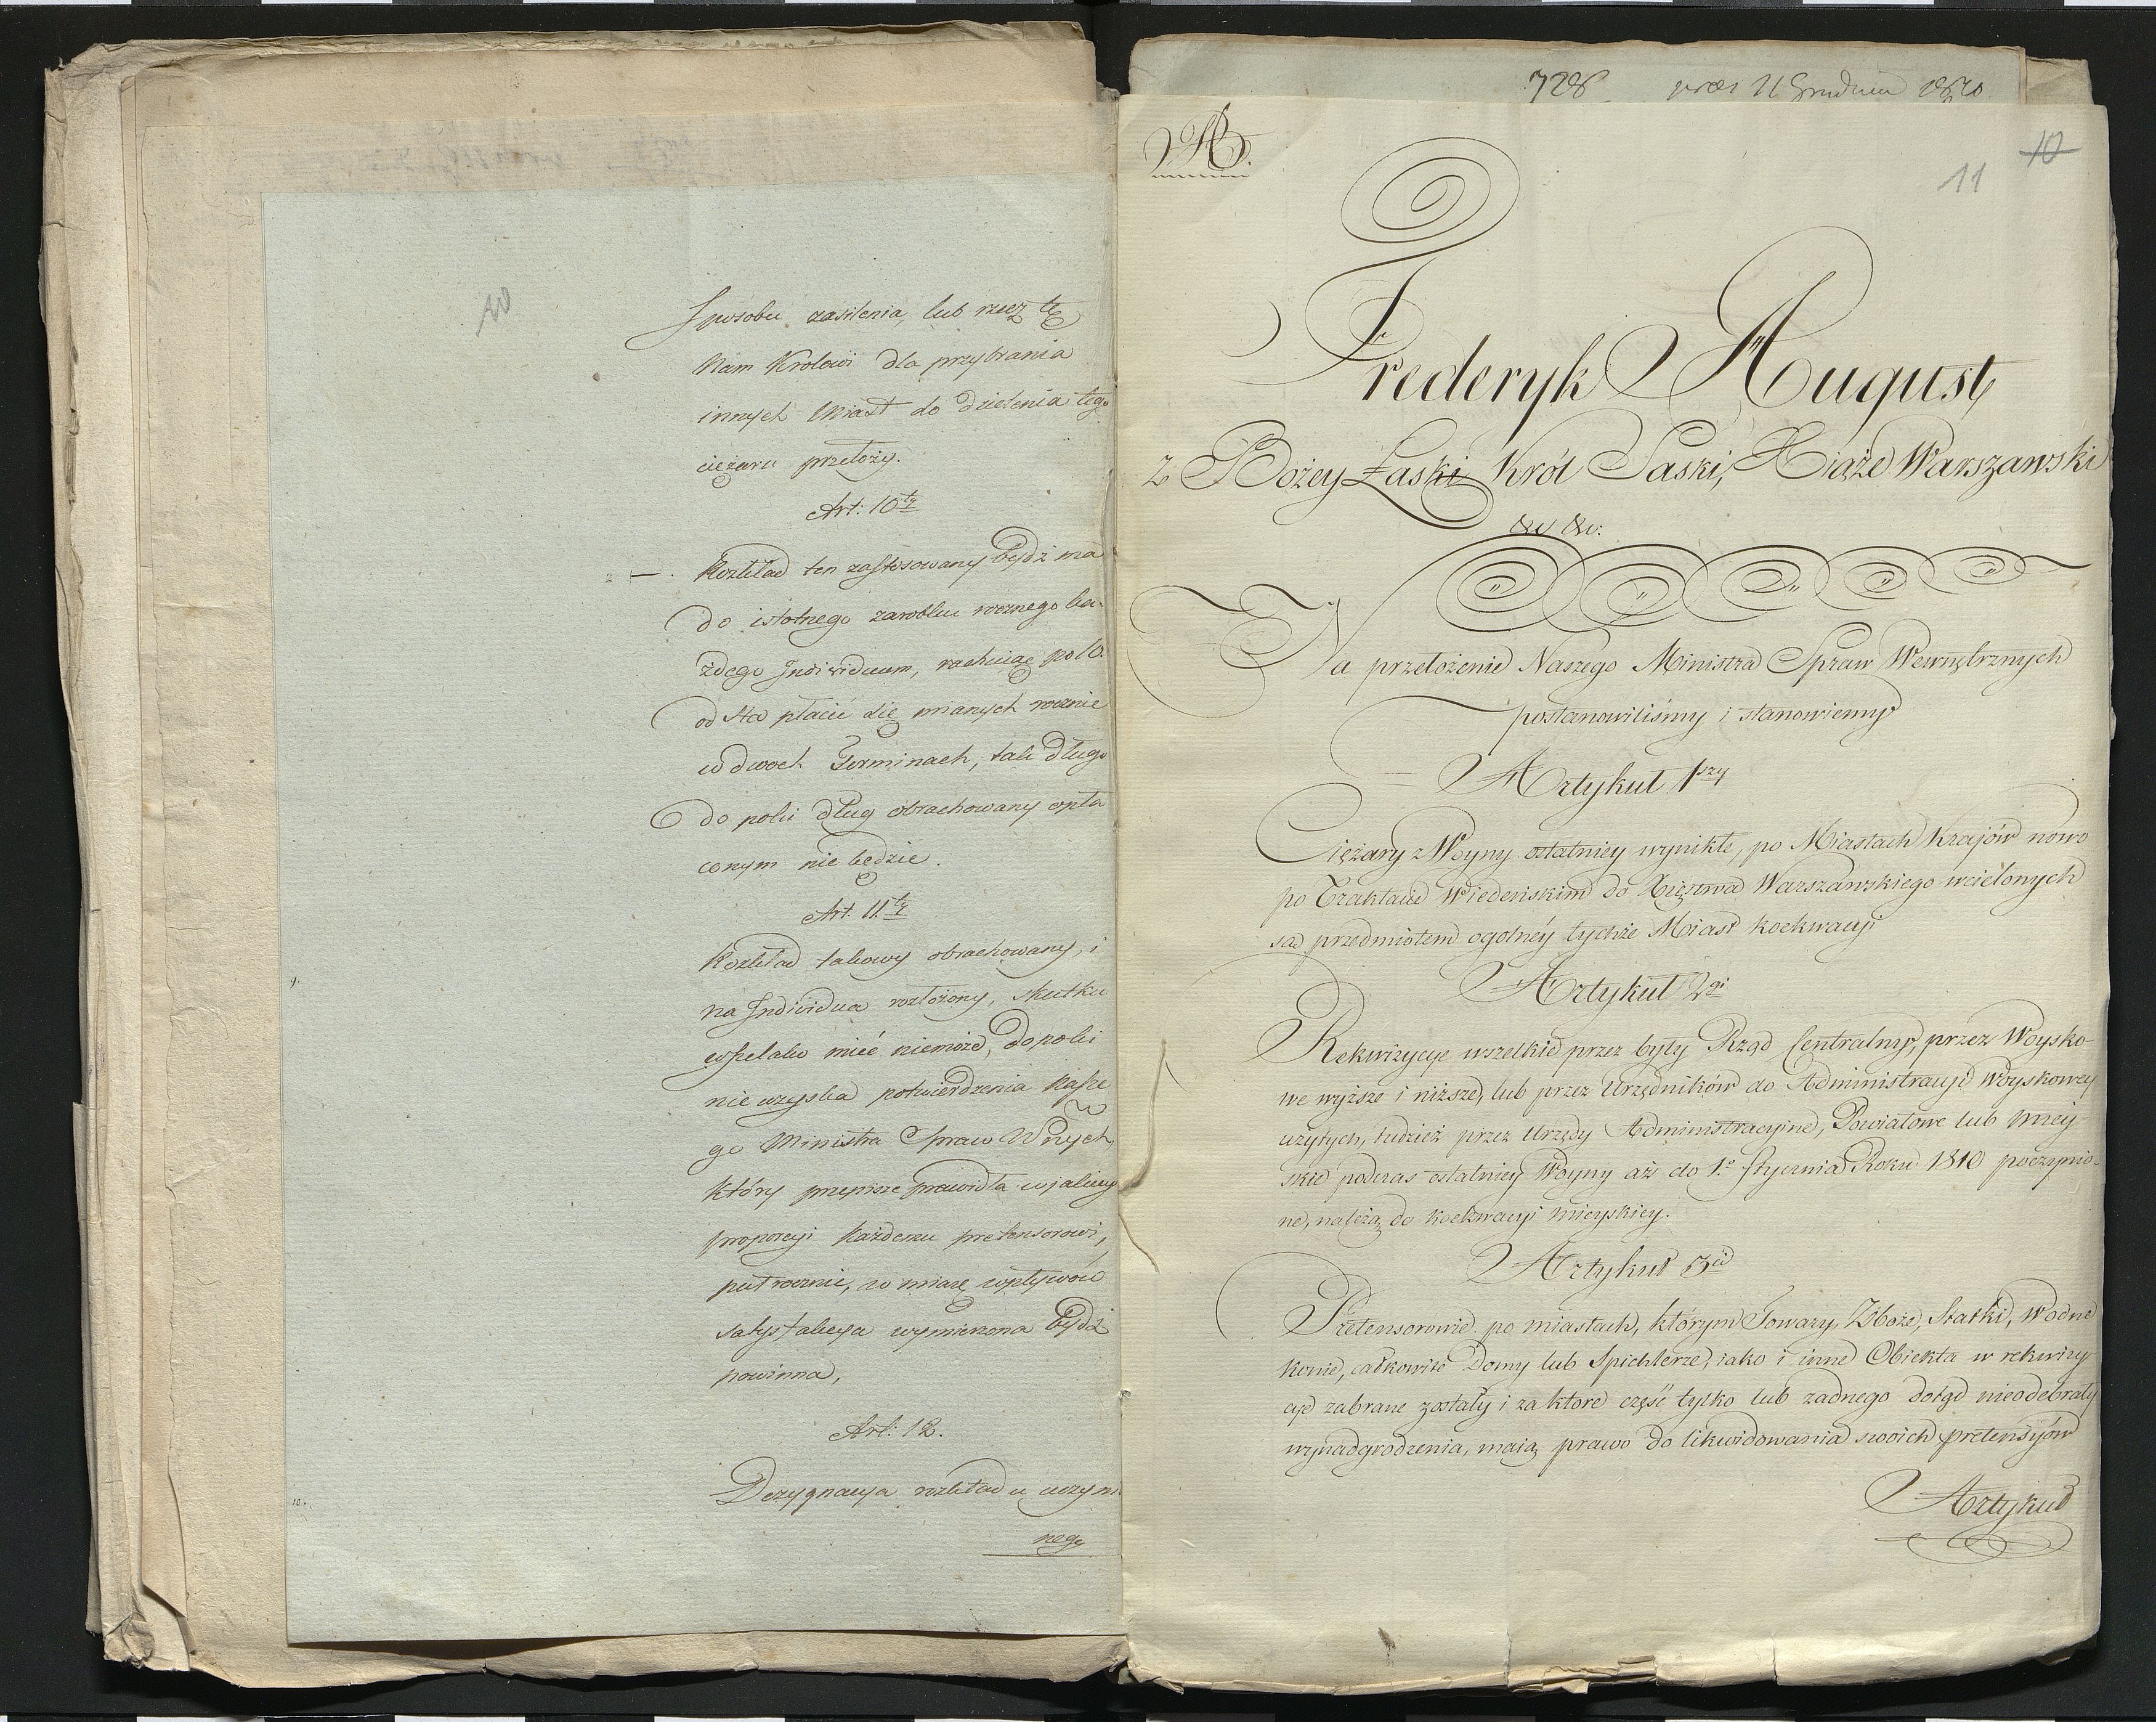 Sposobu zasilenia, lub rzecz tę
Nam Krolowi dla przybrania
innych Miast do dzielenia tego
ciężaru przełoży.
Art: 10ty
Rozkład ten zastosowany bydź ma
do istotnego zarobku rocznego ka-
żdego Individuum, rachuiąc po 10.
od sta płacić się mianych rocznie
w dwoch Terminach, tak długo
do poki dług obrachowany opła
conym nie będzie.
Art: 11ty
9.
Rozkład takowy obrachowany, i
na Individua rozłożony, skutku
wszelako mieć niemoże, do poki
nie uzyska potwierdzenia Nasze
go Ministra Spraw Wnych,
który przepisze prawidła w jakiey
proporcyi każdemu pretensorowi,
puł rocznie, w miarę wpływów
satysfakcya wymierzona bydź
powinna,
Art: 12.
10.
Dezygnacya rozkładu uczynio
nego
728 prez 21 Grudnia 1810
10
11
Fryderyk August
z Bożey Łaski Król Saski, Xiąże Warszawski
&c &c:
Na przełożenie Naszego Ministra Spraw Wewnętrznych
postanowiliśmy i stanowiemy
Artykuł 1szy
Ciężary z Woyny ostatniey wynikłe, po Miastach Krajów nowo
po Traktacie Wiedeńskim do Xięstwa Warszawskiego wcielonych
są przedmiotem ogolney tychże Miast koekwacyi
Artykuł 2gi
Rekwizycye wszelkie przez były Rząd Centralny, przez Woysko-
we wyższe i niższe, lub przez Urzędników do Administracyi Woyskowey
użytych, tudzież przez Urzędy Administracyine, Powiatowe lub miey-
skie podczas ostatniey Woyny aż do 1.o Stycznia Roku 1810 poczynio-
ne, należą do koekwacyi mieyskiey.
Artykuł 3ci
Pretensorowie po miastach, którym Towary, Zboże, Statki, Wodne
konie, całkowite Domy lub Spichlerze, iako i inne Obiekta w rekwizy
cye zabrane zostały i za ktore część tylko lub żadnego dotąd nieodebrały
wynadgrodzenia, maią prawo do likwidowania swoich pretensyów
Artykuł